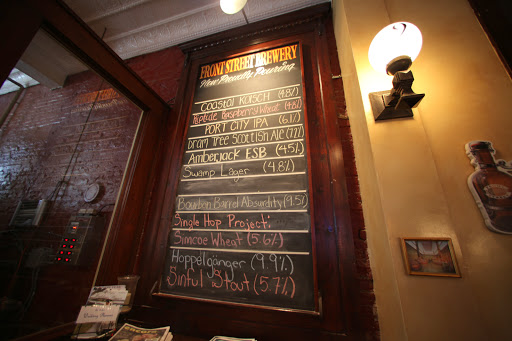 FRONT STREET BREWERY
Now Proudly Pouring
Coastal Kölsch (4.8%)
Riptide Raspberry Wheat (4.8%)
PORT CITY IPA (6.1%)
Dram Tree Scottish Ale (7.7%)
Amberjack ESB (4.5%)
Swamp Lager (4.8%)
Bourbon Barrel Absurdity (9.5%)
Single Hop Project:
Simcoe Wheat (5.6%)
Hoppelgänger (9.9%)
Sinful Stout (5.7%)